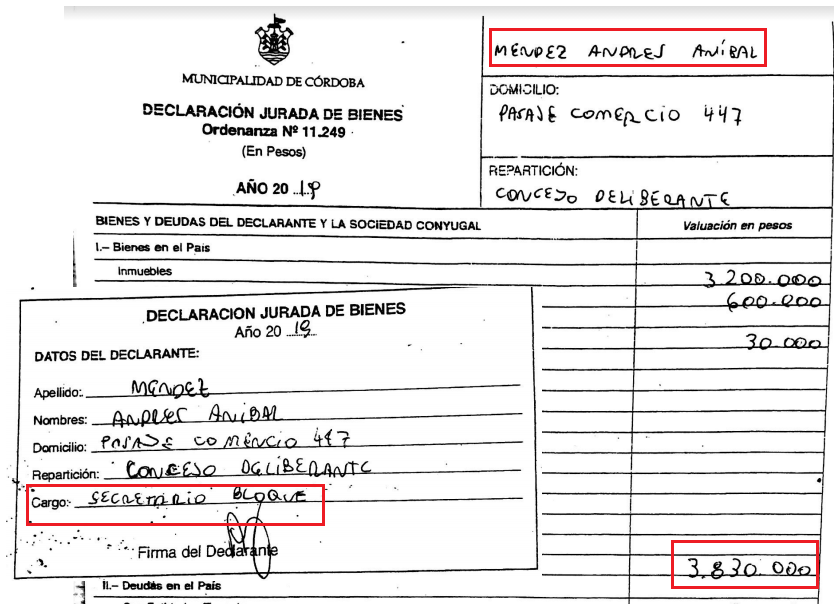 MUNICIPALIDAD DE CÓRDOBA
DECLARACIÓN JURADA DE BIENES
Ordenanza Nº 11.249
(En Pesos)
AÑO 2019
MENDEZ ANDRES ANÍBAL
DOMICILIO:
PASAJE COMERCIO 447
REPARTICIÓN:
CONCEJO DELIBERANTE
BIENES Y DEUDAS DEL DECLARANTE Y LA SOCIEDAD CONYUGAL
Valuación en pesos
I.– Bienes en el País
Inmuebles
3.200.000
600.000
30.000
3.830.000
II.– Deudas en el País
DECLARACION JURADA DE BIENES
Año 2019
DATOS DEL DECLARANTE:
Apellido: MENDEZ
Nombres: ANDRES ANIBAL
Domicilio: PASAJE COMERCIO 447
Repartición: CONCEJO DELIBERANTE
Cargo: SECRETARIO BLOQUE
Firma del Declarante